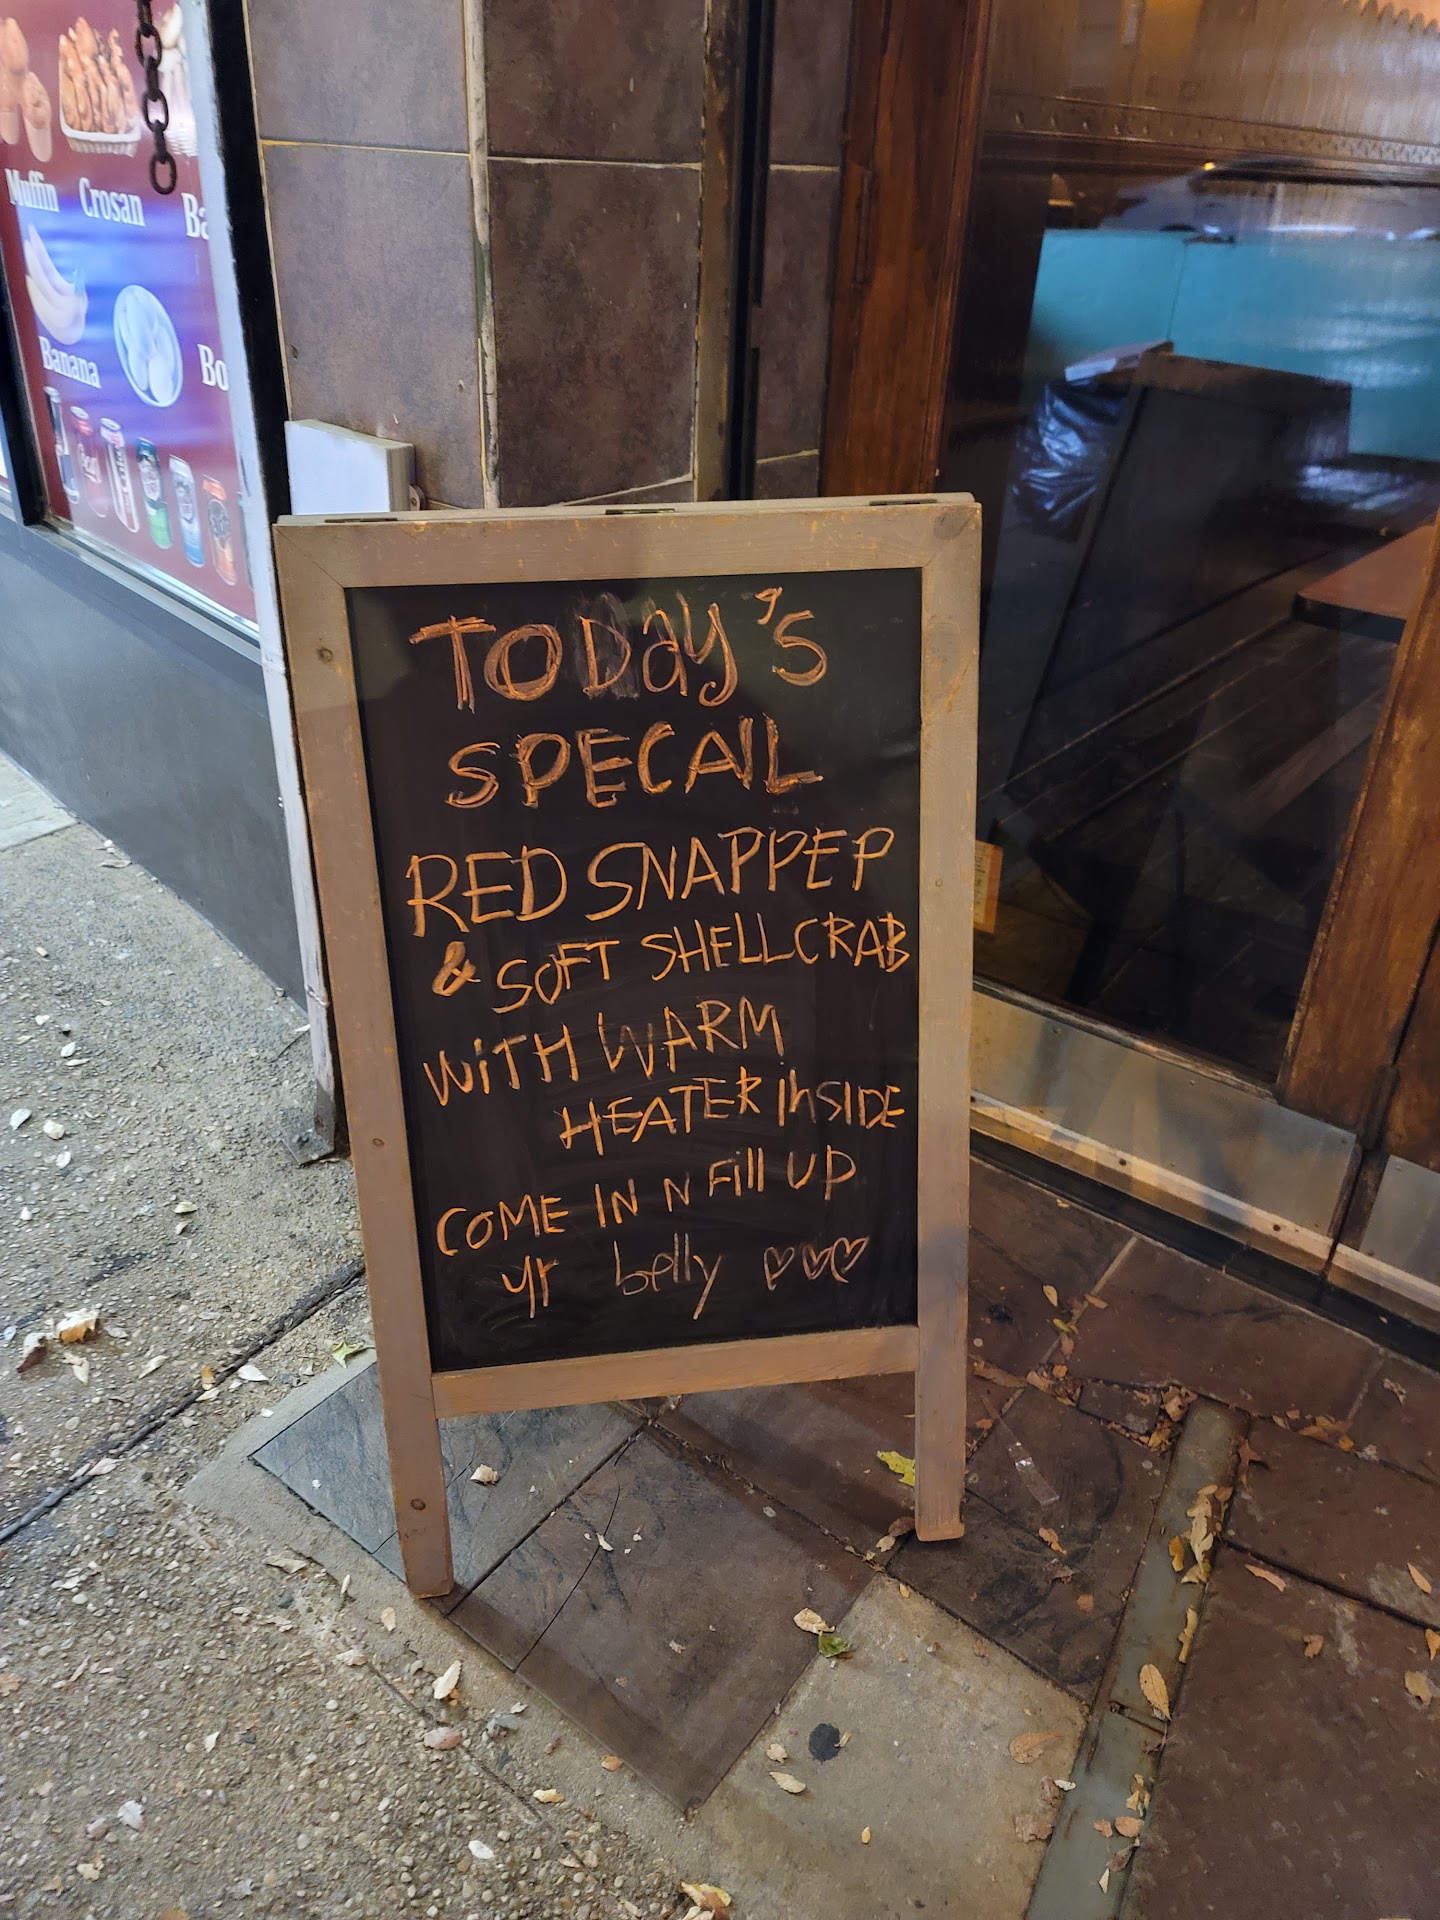 Muffin Crosan Ba
Banana Bo
TODay's
SPECAIL
RED SNAPPEP
& SOFT SHELL CRAB
WiTH WARM
HEATER INSIDE
COME IN N Fill UP
yr belly ♡♡♡